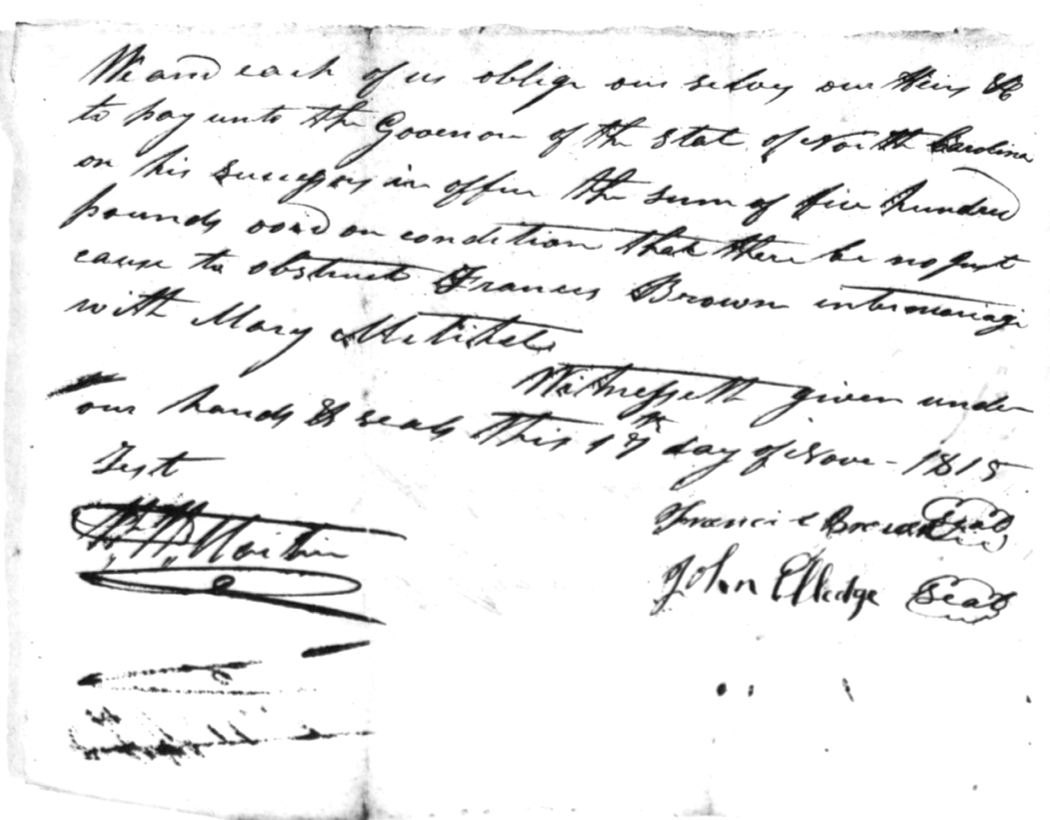 We and each of us oblige our selves our Heirs &c
to pay unto the Govenor of the State of North Carolina
on his Successors in office the sum of five Hundred
pounds void on condition that there be no just
cause to obstruct Francis Brown intermariage
with Mary Mitchel
Witnesseth given under
our hands & seals this 17th day of Nove - 1815
Test
Martin
Francis Brown Seal
John Elledge Seal